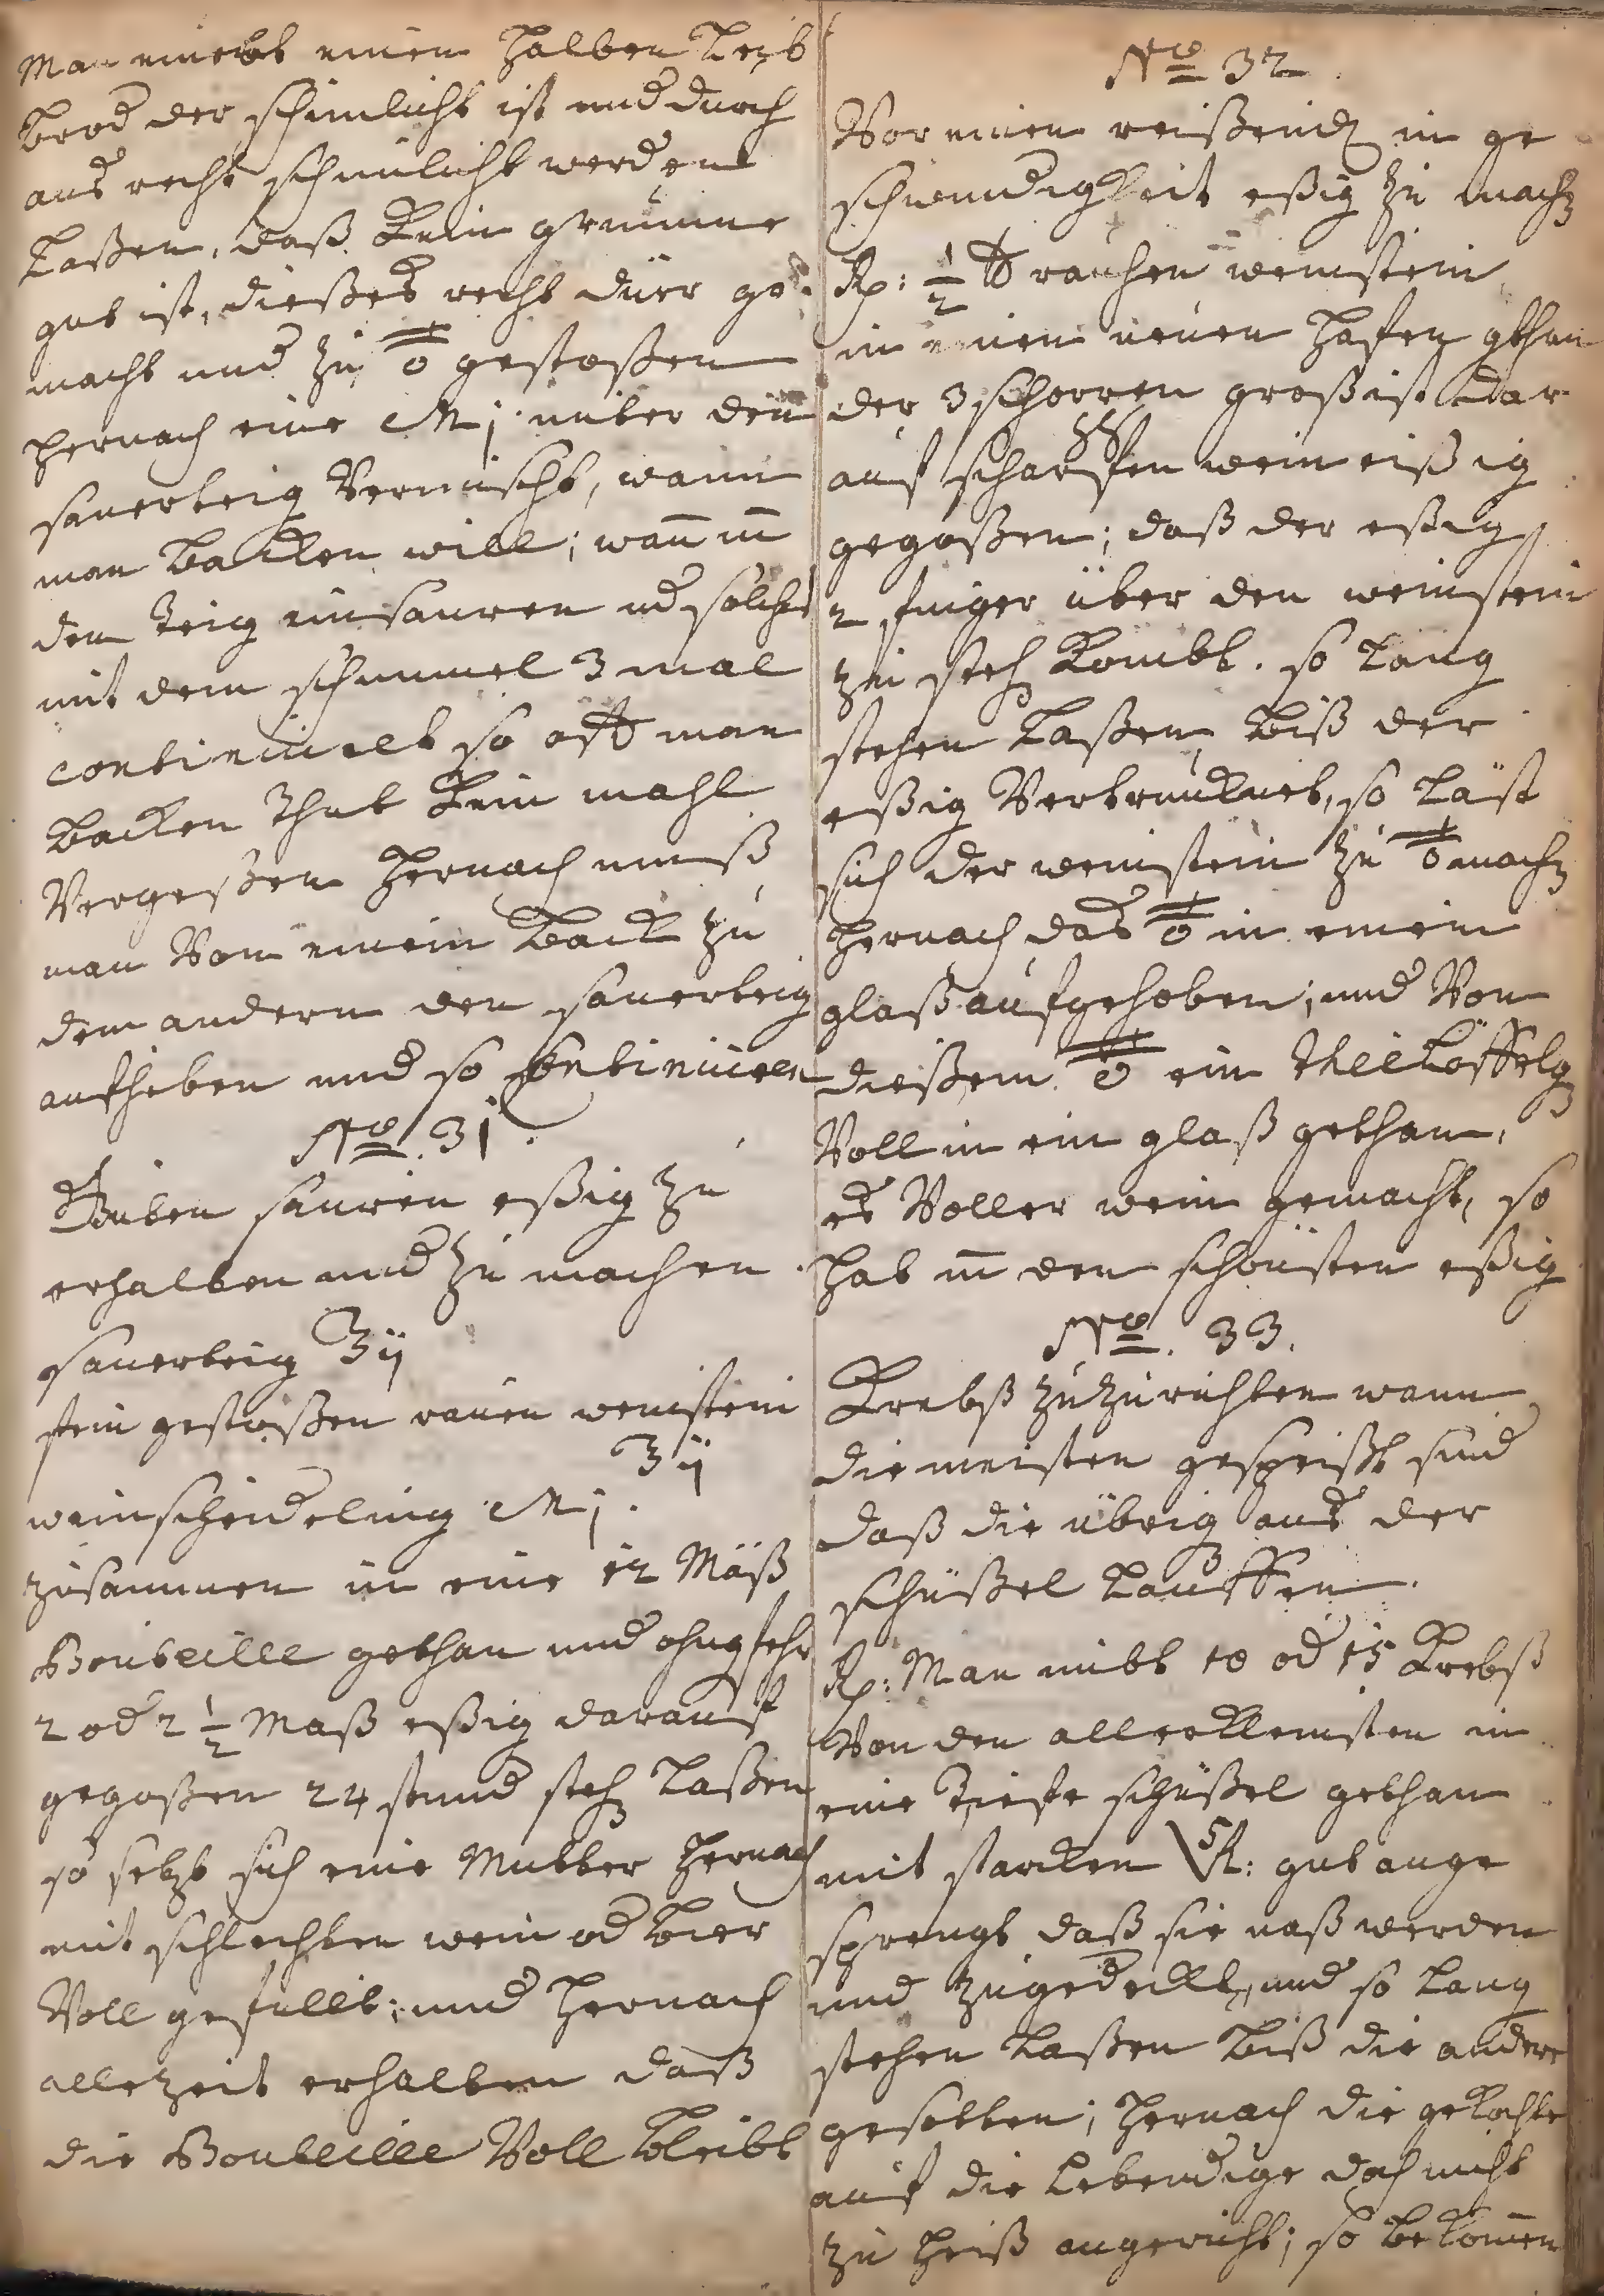 Man nimbt einen halben Leib
brod der schimlicht ist und durch
aus recht schimlicht werden
laßen, daß kein grümme
gut ist, dießes recht dürr ge-
macht und zu gestoßen
hernach eine M j. unter den
sauerteig Vermischt, wann
man backen will; wan̅ m̅
den teig einsauren ud solches
mit dem schimmel 3 mal
continuirt so offt man
backen thut kein mahl
Vergeßen hernach muß
man Von einem back zu
dem andern den sauerteig
aufheben und so continuiren
No. 31.
Guten sauren eßig zu
erhalten und zu machen.
sauerteig ℥ij
klein gestoßen rauen weinstein
℥ij
weinscheideling M j.
zusammen in eine 12 Mäß
Bouteille gethan und ohngefehr
2 od 2 1/2 Maß eßig darauf
gegoßen 24 stund steh laßen
so setzt sich eine Mutter hernach
mit schlechten wein od bier
Voll gefüllt; und hernach
allezeit erhalten daß
die Bouteille Voll bleibt
No 32.
Vor einen reißend in ge
schwindigkeit eßig zu mach
Rp: 1/2 ℔ rauhen weinstein
in einen neuen hafen gthan
der 3 schorren groß ist dar
auf scharffen wein eißig
gegoßen; daß der eßig
2 finger über den weinstein
zu steh kombt. so lang
stehen laßen biß der
eßig Vertrucknet, so läst
sich der weinstein zu mach
hernach das in einem
glaß aufgehoben; und Von
dießem ein theelöffelg
Voll in ein glaß gethan,
es Voller wein gemacht, so
hat m̅ den schönsten eßig
No. 33.
Krebß zuzurichten wann
die meisten gespeißt sind
daß die übrig aus der
schüßel lauffen.
Rp: Man nimbt 10 od 15 Krebß
Von den allerkleinsten in
eine tieffe schüßel gethan
mit starcken gut ange
sprengt daß sie naß werden
und zugedeckt, und so lang
stehen laßen biß die andere
gesotten; hernach die gekochte
auf die lebendige doch nicht
zu heiß angericht; so bekom̅en